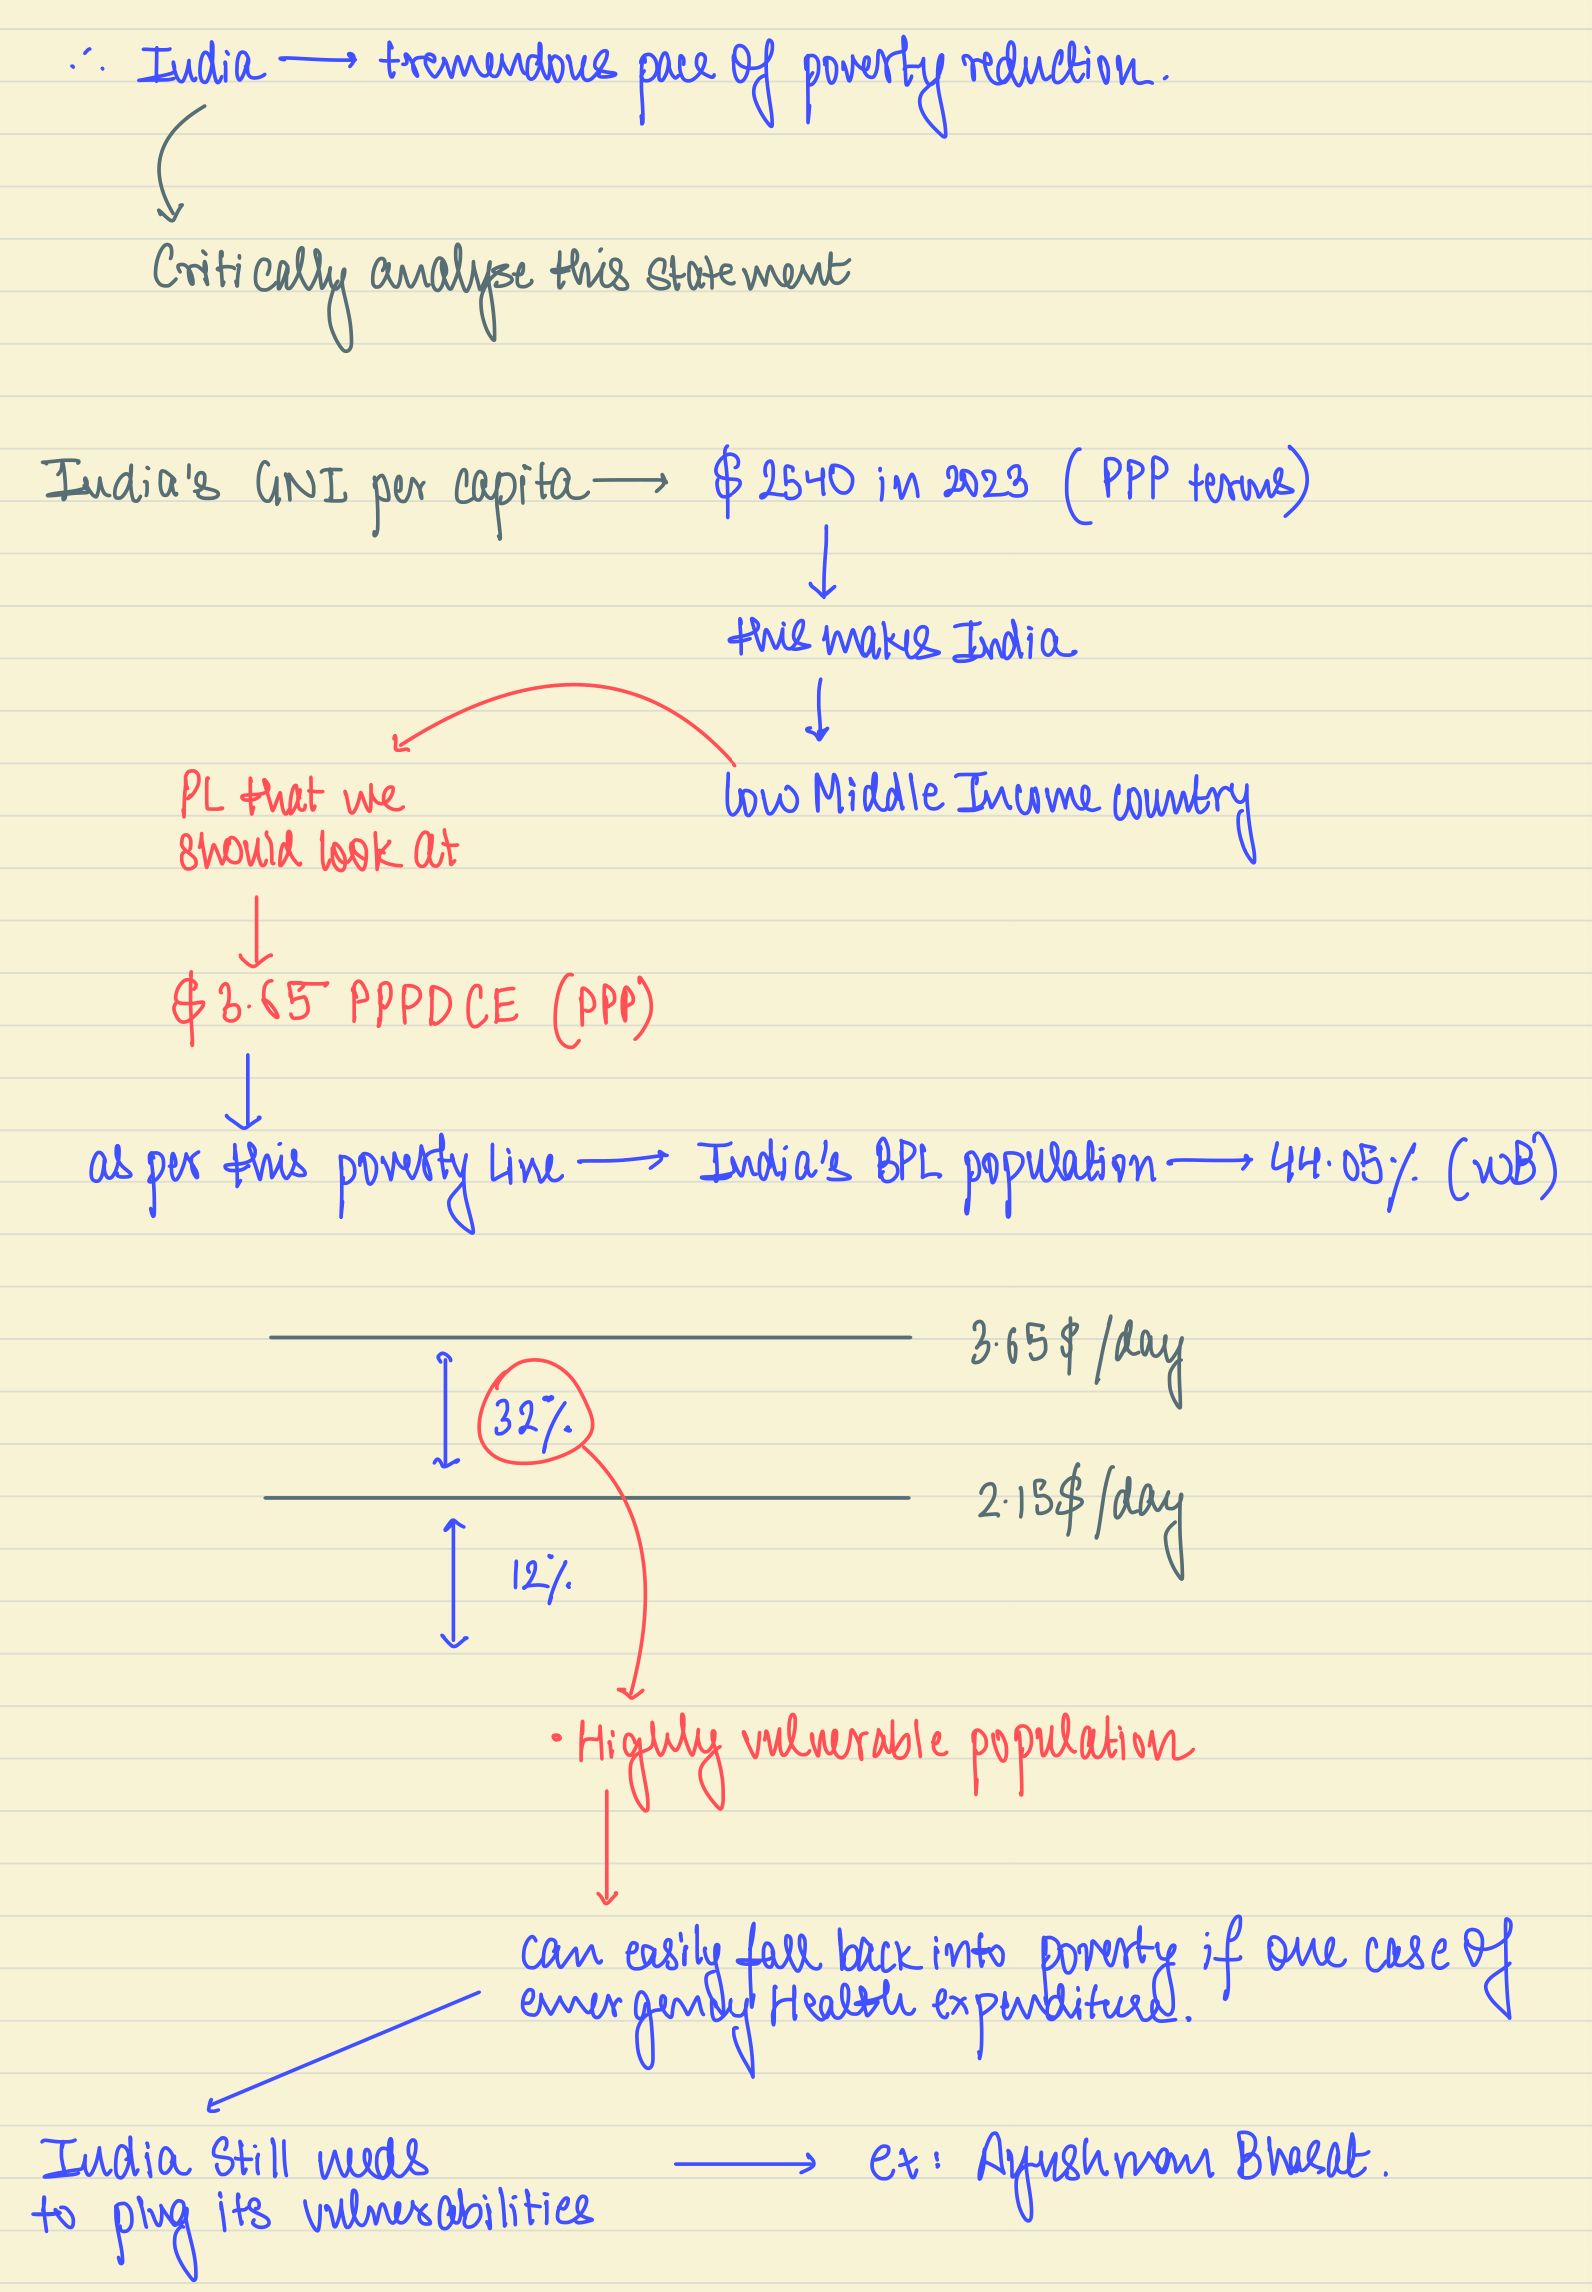 ∴ India → tremendous pace of poverty reduction.
Critically analyse this statement
India's GNI per capita → $ 2540 in 2023 (PPP terms)
this makes India
Low Middle Income country
PL that we
should look at
$ 3.65 PPPDCE (PPP)
as per this poverty line → India's BPL population → 44.05% (WB)
3.65$/day
32%
2.15$/day
12%
• Highly vulnerable population
can easily fall back into poverty if one case of
emergency Health expenditure.
India still needs → ex: Ayushman Bharat.
to plug its vulnerabilities